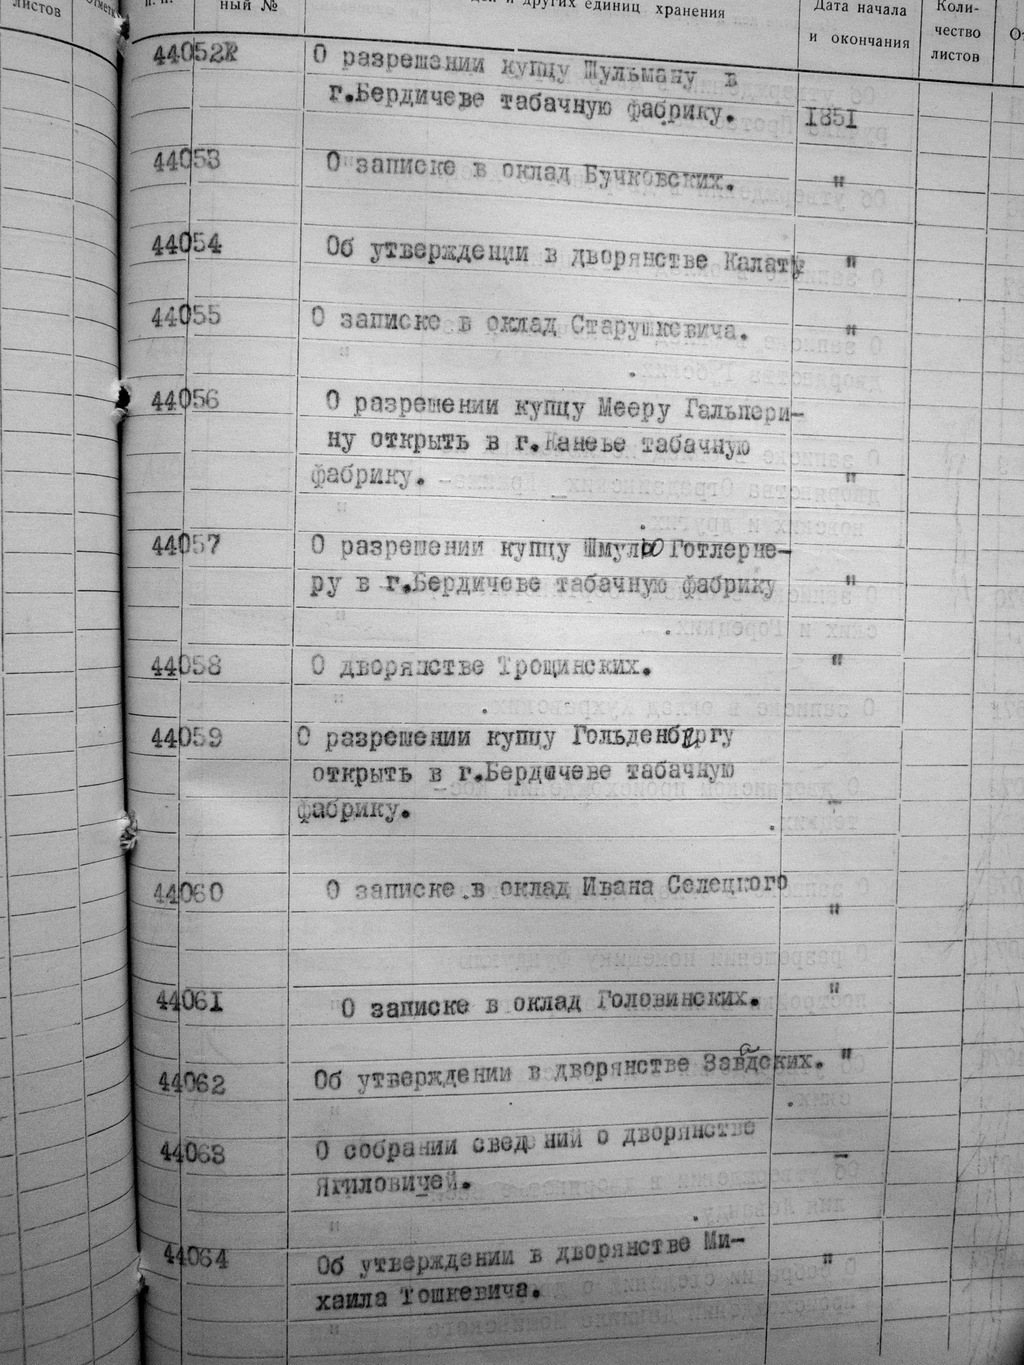 листов
ный №
и других единиц хранения
Дата начала
и окончания
Коли-
чество
листов
44052
О разрешении купцу Шульману в
г.Бердичеве табачную фабрику. 1851
44053 О записке в оклад Бучковских. "
44054 Об утверждении в дворянстве Калату "
44055 О записке в оклад Старушкевича. "
44056 О разрешении купцу Мееру Гальпери-
ну открыть в г.Каневе табачную
фабрику. "
44057 О разрешении купцу Шмулю Готлерне-
ру в г.Бердичеве табачную фабрику "
44058 О дворянстве Трощинских. "
44059 О разрешении купцу Гольденбергу
открыть в г.Бердичеве табачную
фабрику. -
44060 О записке в оклад Ивана Селецкого
"
44061 О записке в оклад Головинских. "
44062 Об утверждении в дворянстве Завадских. "
44063 О собрании сведений о дворянстве
Ягиловичей. -
44064 Об утверждении в дворянстве Ми- "
хаила Тошкевича.